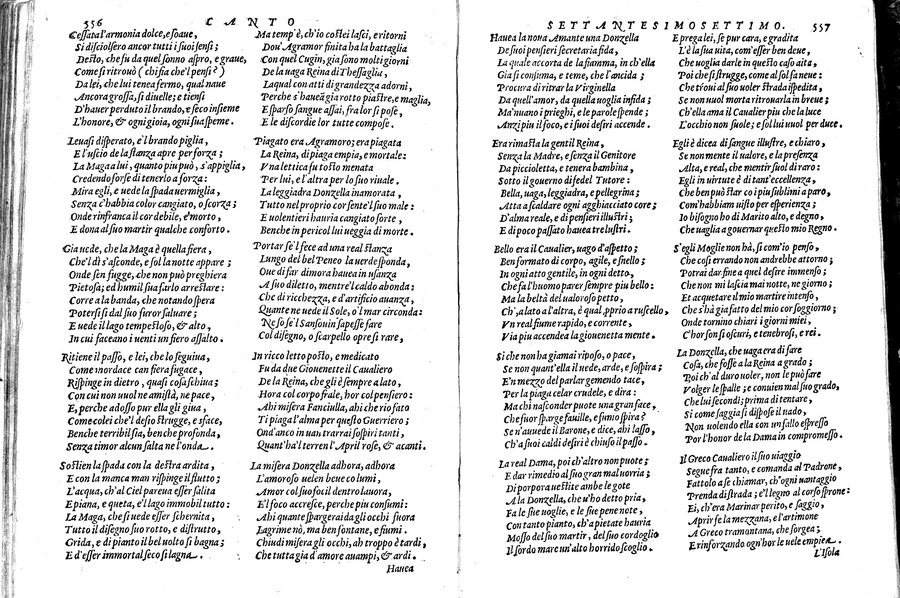 556 CANTO
Cessata l'armonia dolce, e soaue,
Si disciolsero ancor tutti i suoi sensi;
Desto, che fu da quel sonno aspro, e graue,
Come si ritrouò (chi sia che'l pensi?)
Da lei, che lui tenea fermo, qual naue
Ancora grossa, si diuelle; e tiensi
D'hauer perduto il brando, e seco insieme
L'honore, & ogni gioia, ogni sua speme.
Leuasi disperato, e'l brando piglia,
E l'uscio de la stanza apre per forza;
La Maga a lui, quanto piu può, s'appiglia,
Credendo forse di tenerlo a forza:
Mira egli, e uede la spada uermiglia,
Senza c'habbia color cangiato, o scorza;
Onde rinfranca il cor debile, e morto,
E dona al suo martir qualche conforto.
Gia uede, che la Maga è quella fiera,
Che'l dì s'asconde, e sol la notte appare;
Onde sen fugge, che non può preghiera
Pietosa; ed humil sua farlo arrestare:
Corre a la banda, che notando spera
Potersi di dal suo furor saluare;
E uede il lago tempestoso, & alto,
In cui faceano i uenti un fiero assalto.
Ritiene il passo, e lei, che lo seguiua,
Come n'ordace can fiera fugace,
Rispinge in dietro, quasi cosa schiua;
Con cui non uuol ne amistà, ne pace,
E, perche adosso pur ella gli giua,
Come colei che'l desio strugge, e sface,
Benche terribil sia, benche profonda,
Senza timor alcun salta ne l'onda.
Sostien la spada con la destra ardita,
E con la manca man rispinge il flutto;
L'acqua, ch'al Ciel pareua esser salita
E piana, e queta, e'l lago immobil tutto:
La Maga, che si uede esser schernita,
Tutto il disegno suo rotto, e distrutto,
Grida, e di pianto il bel uolto si bagna;
E d'esser immortal seco si lagna.
Ma temp'è, ch'io costei lasci, e ritorni
Dou'Agramor finita ha la battaglia
Con quel Cugin, gia sono molti giorni
De la uaga Reina di Thessaglia,
Laqual con atti di grandezza adorni,
Perche s'hauea gia rotto piastre, e maglia,
E sparso sangue assai, fra lor si pose,
E le discordie lor tutte compose.
Piagato era Agramoro; era piagata
La Reina, di piaga empia, e mortale:
V'n a lettica fu tosto menata
Per lui, e l'altra per lo suo riuale.
La leggiadra Donzella inamorata,
Tutto nel proprio cor sente'l suo male:
E uolentieri hauria cangiato sorte,
Benche in pericol lui ueggia di morte.
Portar se'l fece ad una real stanza
Lungo del bel Peneo la uerde sponda,
Oue di far dimora hauea in usanza
A suo diletto, mentre'l caldo abonda:
Che di ricchezza, e d'artificio auanza,
Quante ne uede il Sole, o'l mar circonda:
Ne so se'l Sansouin sapesse fare
Col disegno, o scarpello opre si rare,
In ricco letto posto, e medicato
Fu da due Giouenette il Caualiero
De la Reina, che gli è sempre a lato,
Hora col corpo frale, hor col pensiero:
Ahi misera Fanciulla, ahi che rio fato
Ti piaga l'alma per questo Guerriero;
Ond'anco in uan trarrai sospiri tanti,
Quant'ha'l terren l'April rose, & acanti.
La misera Donzella adhora, adhora
L'amoroso uelen beue co lumi,
Amor col suo focil dentro lauora,
E'l foco accresce, perche piu consumi:
Ahi quante spargerai da gli occhi fuora
Lagrime nò, ma ben fontane, e fiumi.
Chiudi misera gli occhi, ah troppo è tardi,
Che tutta gia d'amore auampi, & ardi.
Hauea
SETTANTESIMOSETTIMO. 557
Hauea la noua Amante una Donzella
De suoi pensieri secretaria fida,
La quale accorta de la fiamma, in ch'ella
Gia si consuma, e teme, che l'ancida;
Procura di ritrar la Virginella
Da quell'amor, da quella uoglia infida;
Ma'nuano i prieghi, e le parole spende;
Anzi piu il foco, e i suoi desiri accende.
Era rimasta la gentil Reina,
Senza la Madre, e senza il Genitore
Da piccioletta, e tenera bambina,
Sotto il gouerno di fedel Tutore:
Bella, uaga, leggiadra, e pellegrina;
Atta a scaldare ogni agghiacciato core;
D'alma reale, e di pensieri illustri;
E di poco passato hauea tre lustri.
Bello era il Caualier, uago d'aspetto;
Ben formato di corpo, agile, e snello;
In ogni atto gentile, in ogni detto,
Che fa l'huomo parer sempre piu bello:
Ma la beltà del ualoroso petto,
Ch', a lato a l'altra, è qual, pprio a ruscello,
Vn real fiume rapido, e corrente,
Via piu accendea la giouenetta mente.
Si che non ha giamai riposo, o pace,
Se non quant'ella il uede, arde, e sospira;
E'n mezzo del parlar gemendo tace,
Per la piaga celar crudele, e dira:
Ma chi nasconder puote una gran face,
Che fuor sparge fauille, e fumo spira?
Se n'auuede il Barone, e dice, ahi lasso,
Ch'a suoi caldi desiri è chiuso il passo.
La real Dama, poi ch'altro non puote;
E dar rimedio al suo gran mal uorria;
Di porpora uestite ambe le gote
A la Donzella, che u'ho detto pria,
Fa le sue uoglie, e le sue pene note,
Con tanto pianto, ch'a pietate hauria
Mosso del suo martir, del suo cordoglio
Il sordo mare un'alto horrido scoglio.
E prega lei, se pur cara, e gradita
L'è la sua uita, com'esser ben deue,
Che uoglia darle in questo caso aita,
Poi che si strugge, come al sol fa neue:
Che troui al suo uoler strada ispedita,
Se non uuol morta ritrouarla in breue;
Ch'ella ama il Caualier piu che la luce
L'occhio non suole; e sol lui uuol per duce.
Egli è dicea di sangue illustre, e chiaro,
Se non mente il ualore, e la presenza
Alta, e real, che mentir suol di raro:
Egli in uirtute è di tant'eccellenza,
Che ben può star co i piu sublimi a paro,
Com'habbiam uisto per esperienza;
Io bisogno ho di Marito alto, e degno,
Che uaglia a gouernar questo mio Regno.
S'egli Moglie non hà, si com'io penso,
Che cosi errando non andrebbe attorno;
Potrai dar fine a quel desire immenso;
Che non mi lascia mai notte, ne giorno;
Et acquetare il mio martire intenso,
Che s'hà gia fatto del mio cor soggiorno;
Onde tornino chiari i giorni miei,
C'hor son si oscuri, e tenebrosi, e rei.
La Donzella, che uaga era di fare
Cosa, che fosse a la Regina grado;
Poi ch'al duro uoler, non le può fare
Volger le spalle; e conuien mal suo grado,
Che lui secondi; prima di tentare,
Si come saggia si dispose il uado,
Non uolendo ella con un fallo espresso
Por l'honor de la Dama in compromesso.
Il Greco Caualiero il suo uiaggio
Segue fra tanto, e comanda al Padrone,
Fattolo a se chiamar, ch'ogni uantaggio
Prenda di strada; e'l legno al corso sprone:
Ei, ch'era Marinar perito, e saggio,
Aprir fe la mezzana, e l'artimone
A Greco tramontana, che sorgea;
E rinforzando ogn'hor le uele empiea.
L'Isola